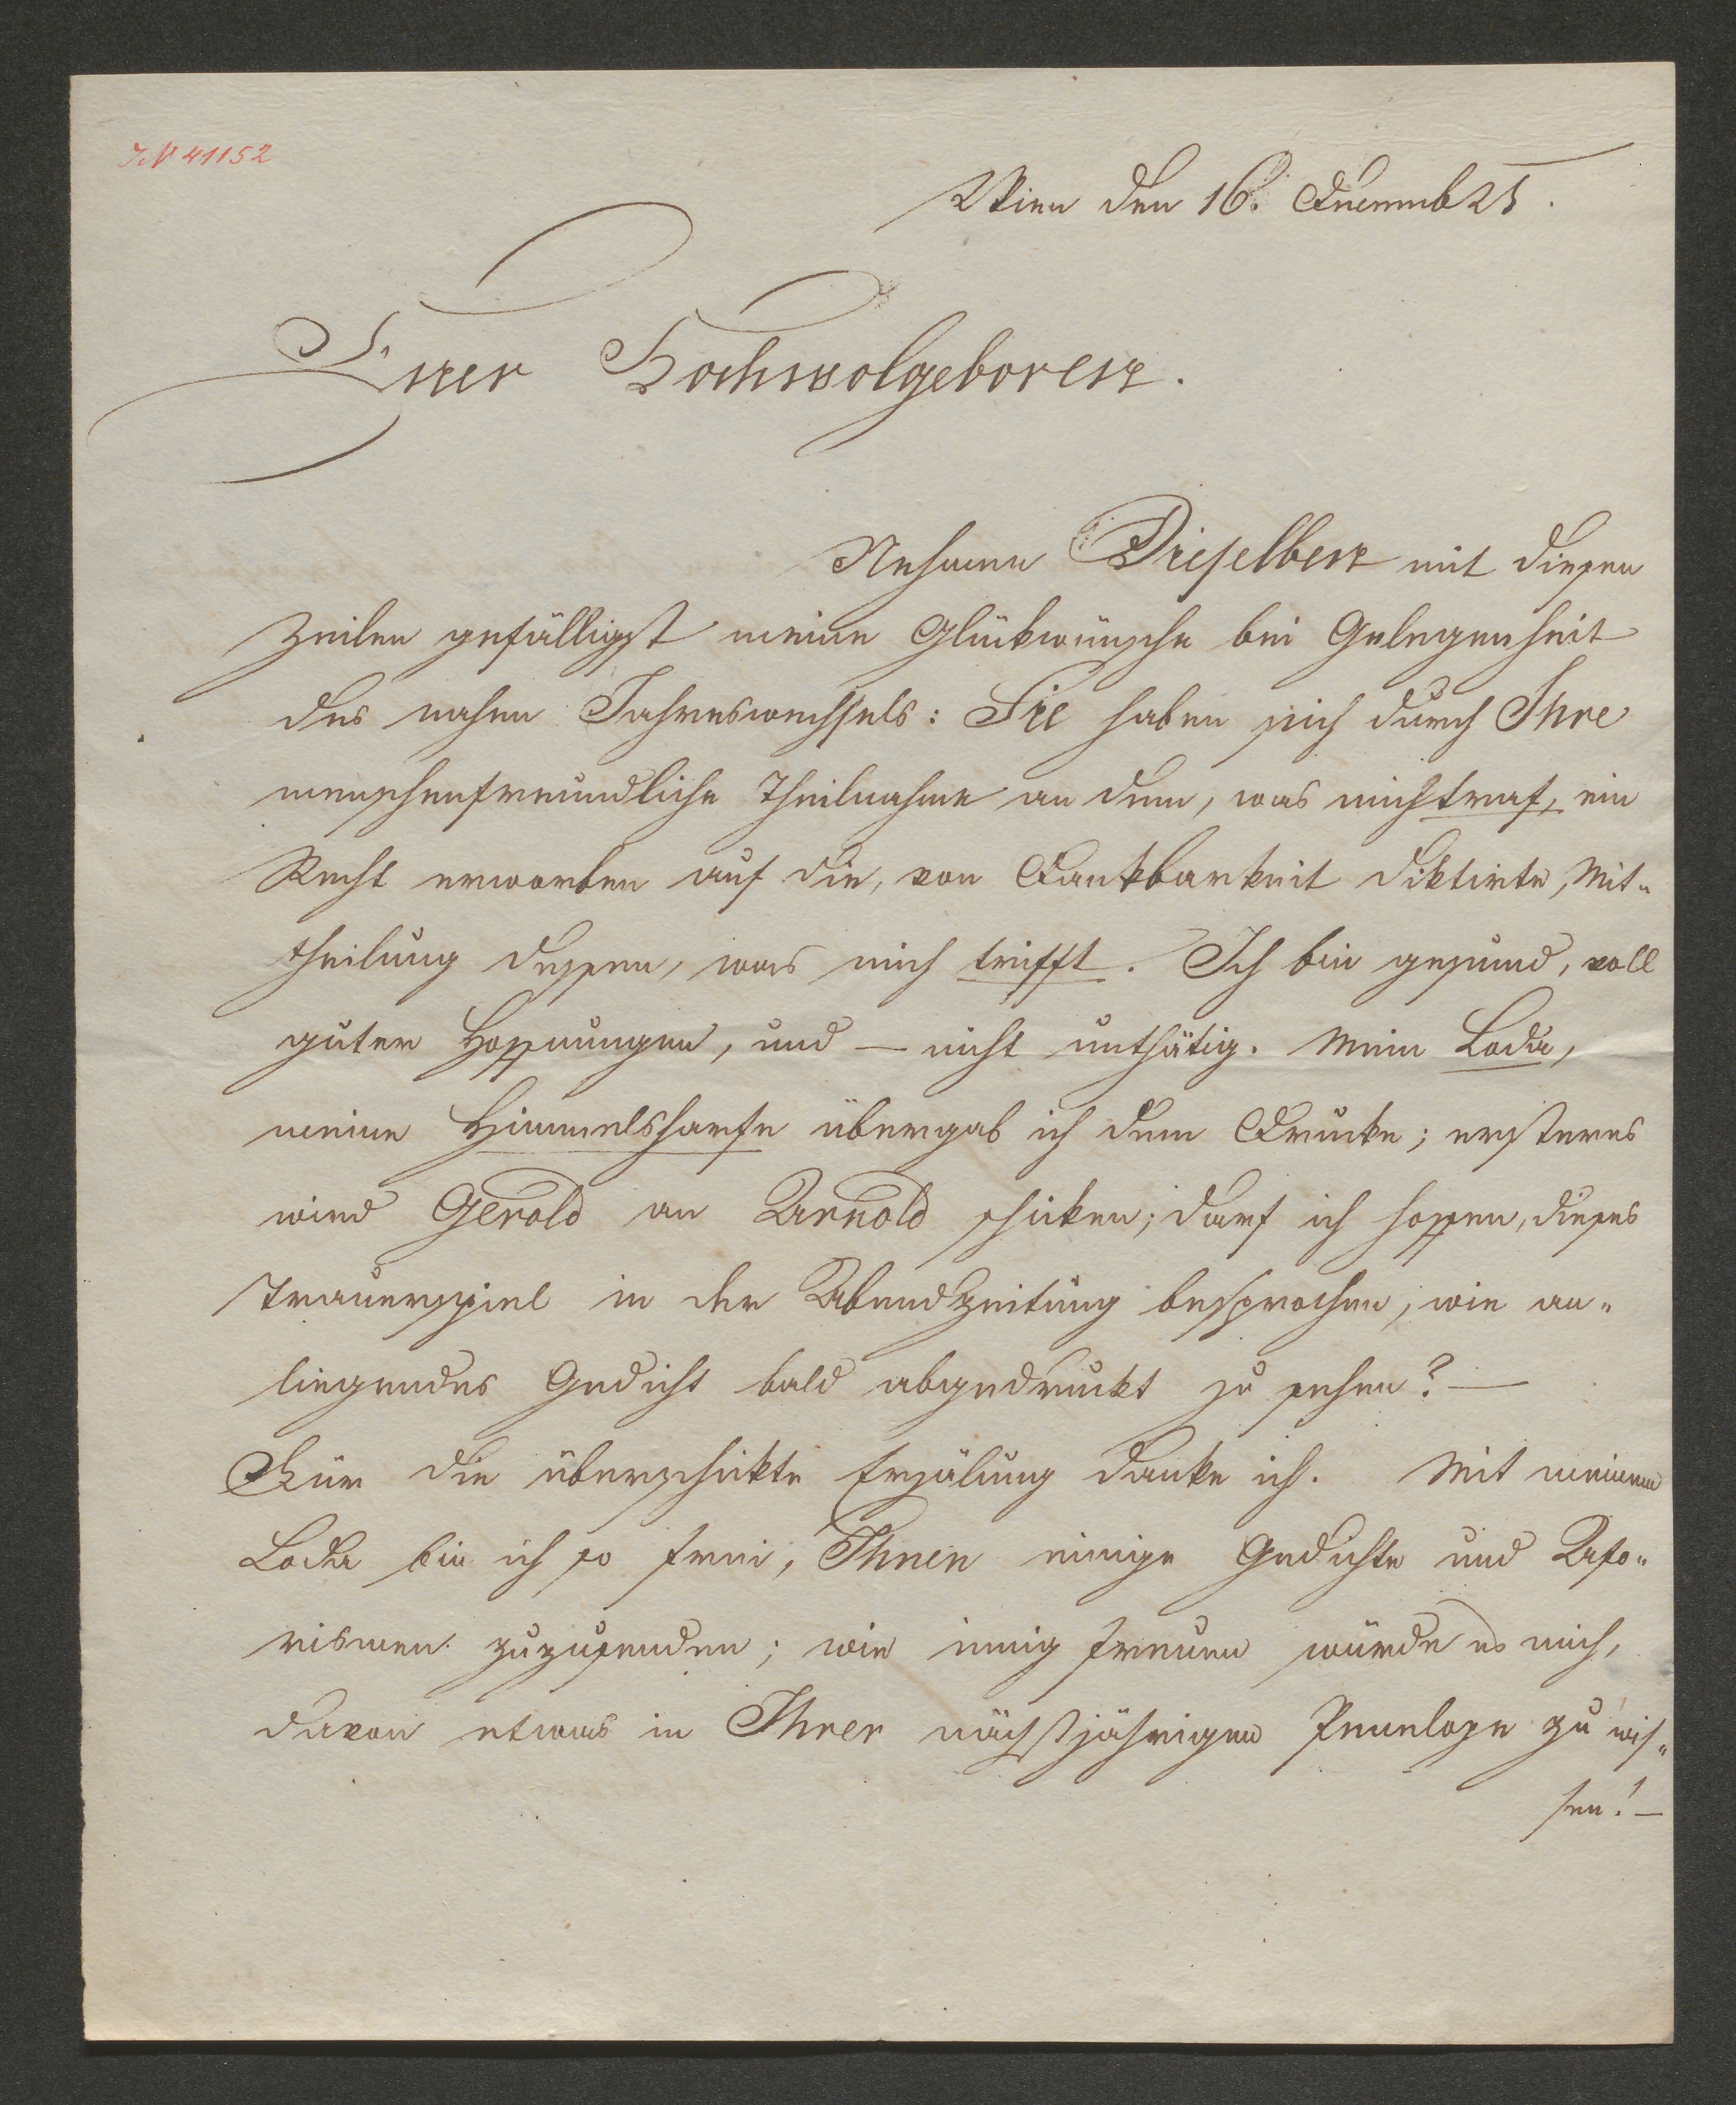 IN 41152
Wien den 16. Decemb 25.
Euer Hochwolgeboren.
Nehmen Dieselben mit diesen
Zeilen gefälligst meine Glükwünsche bei Gelegenheit
des nahen Jahreswechsels: Sie haben sich durch Ihre
menschenfreundliche Theilnahme an dem, was mich traf, ein
Recht erworben auf die, von Dankbarkeit diktirte, Mit-
theilung dessen, was mich trifft. Ich bin gesund, voll
guter Hoffnungen, und — nicht unthätig. Mein Loda,
meine Himmelsharfe übergab ich dem Drucke; ersteres
wird Gerold an Arnold schiken; darf ich hoffen, dieses
Trauerspiel in der Abendzeitung besprochen, wie an-
liegendes Gedicht bald abgedruckt zu sehen? —
Für die überschikte Erzälung danke ich. Mit meinem
Loda bin ich so frei, Ihnen einige Gedichte und Afo-
rismen zuzusenden; wie innig freuen würde es mich,
davon etwas in Ihrer nächstjährigen Penelope zu wis-
sen! —